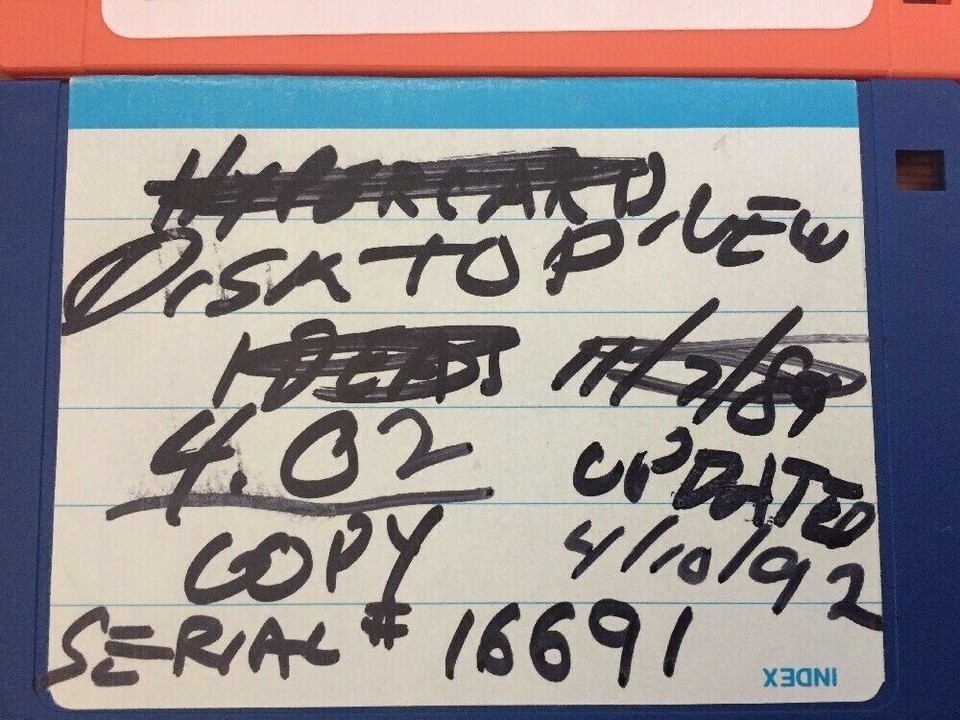 HYPERCARD
DISKTOP, VEW
IDEAS 11/7/89
4.02 UPDATED
COPY 4/10/92
SERIAL # 16691
INDEX